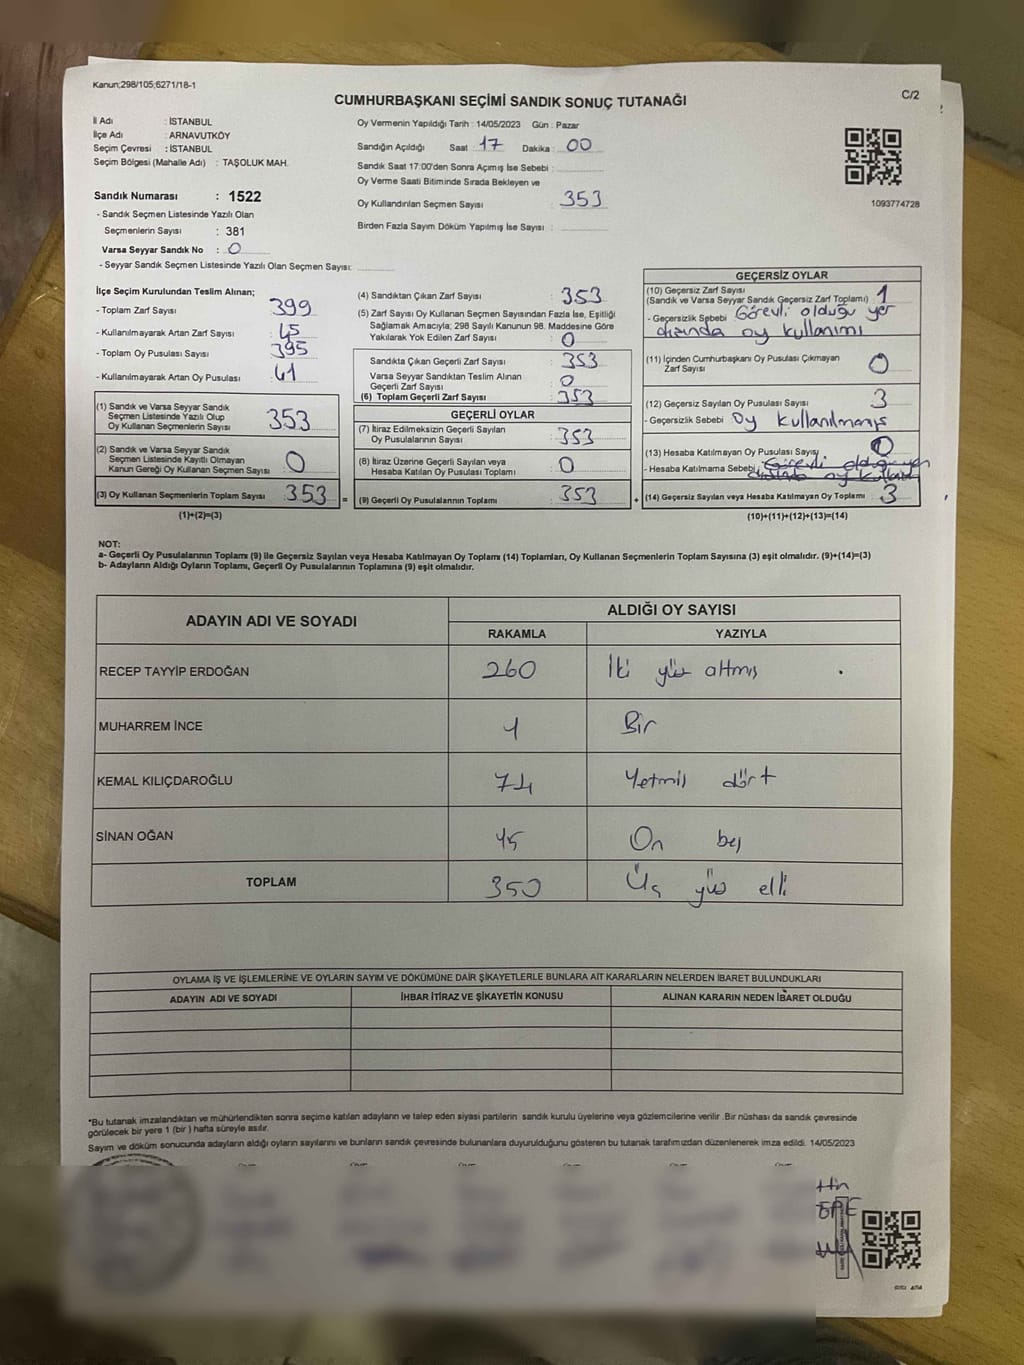 Kanun;298/105;6271/18-1
C/2
CUMHURBAŞKANI SEÇİMİ SANDIK SONUÇ TUTANAĞI
İl Adı : İSTANBUL
İlçe Adı : ARNAVUTKÖY
Seçim Çevresi : İSTANBUL
Seçim Bölgesi (Mahalle Adı) : TAŞOLUK MAH.
Sandık Numarası : 1522
- Sandık Seçmen Listesinde Yazılı Olan
Seçmenlerin Sayısı : 381
Varsa Seyyar Sandık No : 0
- Seyyar Sandık Seçmen Listesinde Yazılı Olan Seçmen Sayısı:
Oy Vermenin Yapıldığı Tarih : 14/05/2023 Gün : Pazar
Sandığın Açıldığı Saat : 17 Dakika : 00
Sandık Saat 17:00'den Sonra Açımış İse Sebebi :
Oy Verme Saati Bitiminde Sırada Bekleyen ve
Oy Kullandırılan Seçmen Sayısı : 353
Birden Fazla Sayım Döküm Yapılmış İse Sayısı :
1093774728
İlçe Seçim Kurulundan Teslim Alınan;
- Toplam Zarf Sayısı : 399
- Kullanılmayarak Artan Zarf Sayısı : 45
- Toplam Oy Pusulası Sayısı : 395
- Kullanılmayarak Artan Oy Pusulası : 41
(1) Sandık ve Varsa Seyyar Sandık
Seçmen Listesinde Yazılı Olup
Oy Kullanan Seçmenlerin Sayısı : 353
(2) Sandık ve Varsa Seyyar Sandık
Seçmen Listesinde Kayıtlı Olmayan
Kanun Gereği Oy Kullanan Seçmen Sayısı : 0
(3) Oy Kullanan Seçmenlerin Toplam Sayısı : 353 =
(1)+(2)=(3)
(4) Sandıktan Çıkan Zarf Sayısı : 353
(5) Zarf Sayısı Oy Kullanan Seçmen Sayısından Fazla İse, Eşitliği
Sağlamak Amacıyla; 298 Sayılı Kanunun 98. Maddesine Göre
Yakılarak Yok Edilen Zarf Sayısı : 0
Sandıkta Çıkan Geçerli Zarf Sayısı : 353
Varsa Seyyar Sandıktan Teslim Alınan
Geçerli Zarf Sayısı : 0
(6) Toplam Geçerli Zarf Sayısı : 353
GEÇERLİ OYLAR
(7) İtiraz Edilmeksizin Geçerli Sayılan
Oy Pusulalarının Sayısı : 353
(8) İtiraz Üzerine Geçerli Sayılan veya
Hesaba Katılan Oy Pusulası Toplamı : 0
(9) Geçerli Oy Pusulalarının Toplamı : 353 +
GEÇERSİZ OYLAR
(10) Geçersiz Zarf Sayısı
(Sandık ve Varsa Seyyar Sandık Geçersiz Zarf Toplamı) : 1
- Geçersizlik Sebebi : Görevli olduğu yer
dışında oy kullanımı
(11) İçinden Cumhurbaşkanı Oy Pusulası Çıkmayan
Zarf Sayısı : 0
(12) Geçersiz Sayılan Oy Pusulası Sayısı : 3
- Geçersizlik Sebebi : Oy Kullanılmamış
(13) Hesaba Katılmayan Oy Pusulası Sayısı : 0
- Hesaba Katılmama Sebebi : Görevli olduğu yer
dışında oy kullanımı
(14) Geçersiz Sayılan veya Hesaba Katılmayan Oy Toplamı : 3
(10)+(11)+(12)+(13)=(14)
NOT:
a- Geçerli Oy Pusulalarının Toplamı (9) ile Geçersiz Sayılan veya Hesaba Katılmayan Oy Toplamı (14) Toplamları, Oy Kullanan Seçmenlerin Toplam Sayısına (3) eşit olmalıdır. (9)+(14)=(3)
b- Adayların Aldığı Oyların Toplamı, Geçerli Oy Pusulalarının Toplamına (9) eşit olmalıdır.
ADAYIN ADI VE SOYADI ALDIĞI OY SAYISI
RAKAMLA YAZIYLA
RECEP TAYYİP ERDOĞAN 260 İki yüz altmış
MUHARREM İNCE 1 Bir
KEMAL KILIÇDAROĞLU 74 Yetmiş dört
SİNAN OĞAN 15 On beş
TOPLAM 350 Üç yüz elli
OYLAMA İŞ VE İŞLEMLERİNE VE OYLARIN SAYIM VE DÖKÜMÜNE DAİR ŞİKAYETLERLE BUNLARA AİT KARARLARIN NELERDEN İBARET BULUNDUKLARI
ADAYIN ADI VE SOYADI İHBAR İTİRAZ VE ŞİKAYETİN KONUSU ALINAN KARARIN NEDEN İBARET OLDUĞU
*Bu tutanak imzalandıktan ve mühürlendikten sonra seçime katılan adayların ve talep eden siyasi partilerin sandık kurulu üyelerine veya gözlemcilerine verilir .Bir nüshası da sandık çevresinde
görülecek bir yere 1 (bir ) hafta süreyle asılır.
Sayım ve döküm sonucunda adayların aldığı oyların sayılarını ve bunların sandık çevresinde bulunanlara duyurulduğunu gösteren bu tutanak tarafımızdan düzenlenerek imza edildi. 14/05/2023